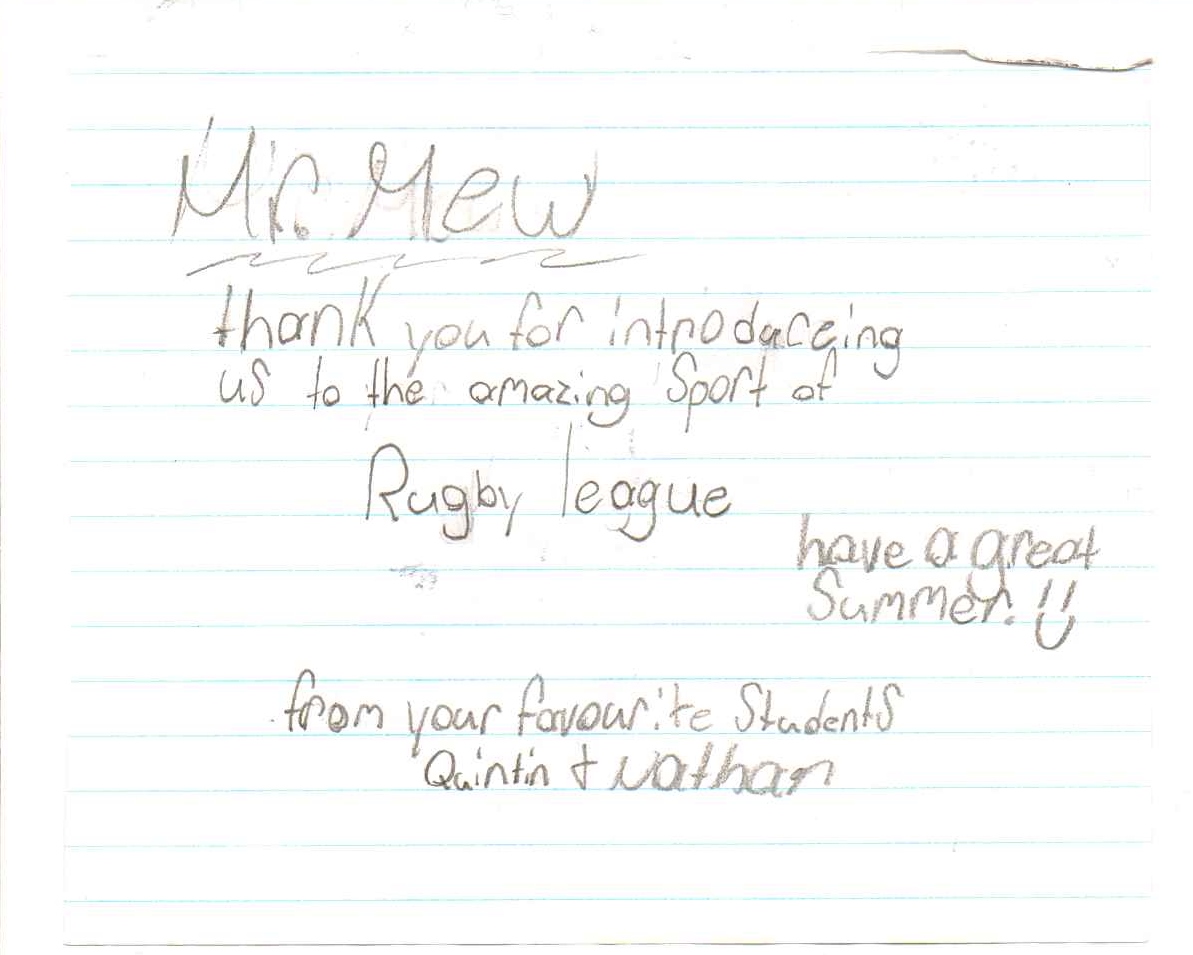 Mr. Mew
thank you for introduceing
us to the amazing Sport of
Rugby league
have a great
Summer. !!
from your favourite Students
Quintin & Nathan